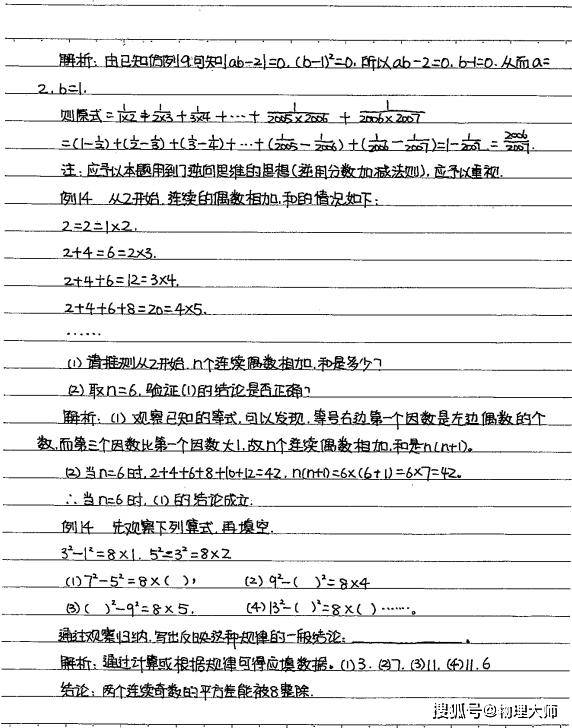 解析：由已知仿例9可知|ab-2|=0，(b-1)²=0，所以ab-2=0，b-1=0．从而a=
2，b=1．
则原式=1/1×2+1/2×3+1/3×4+…+1/2005×2006+1/2006×2007
=(1-1/2)+(1/2-1/3)+(1/3-1/4)+…+(1/2005-1/2006)+(1/2006-1/2007)=1-1/2007=2006/2007．
注：应予以本题用到了逆向思维的思想(逆用分数加减法则)，应予以重视．
例14 从2开始，连续的偶数相加，和的情况如下：
2=2=1×2．
2+4=6=2×3．
2+4+6=12=3×4．
2+4+6+8=20=4×5．
……
(1) 请推测从2开始，n个连续偶数相加，和是多少？
(2) 取n=6，验证(1)的结论是否正确？
解析：(1) 观察已知的等式，可以发现，等号右边第一个因数是左边偶数的个
数，而第二个因数比第一个因数大1，故n个连续偶数相加，和是n(n+1)。
(2) 当n=6时，2+4+6+8+10+12=42，n(n+1)=6×(6+1)=6×7=42。
∴当n=6时，(1)的结论成立．
例14 先观察下列算式，再填空．
3²-1²=8×1．5²-3²=8×2
(1) 7²-5²=8×( )， (2) 9²-( )²=8×4
(3) ( )²-9²=8×5． (4) 13²-( )²=8×( )……。
通过观察归纳，写出反映这种规律的一般结论：________．
解析：通过计算或根据规律可得应填数据。(1)3．(2)7．(3)11．(4)11．6
结论：两个连续奇数的平方差能被8整除．
搜狐号@物理大师